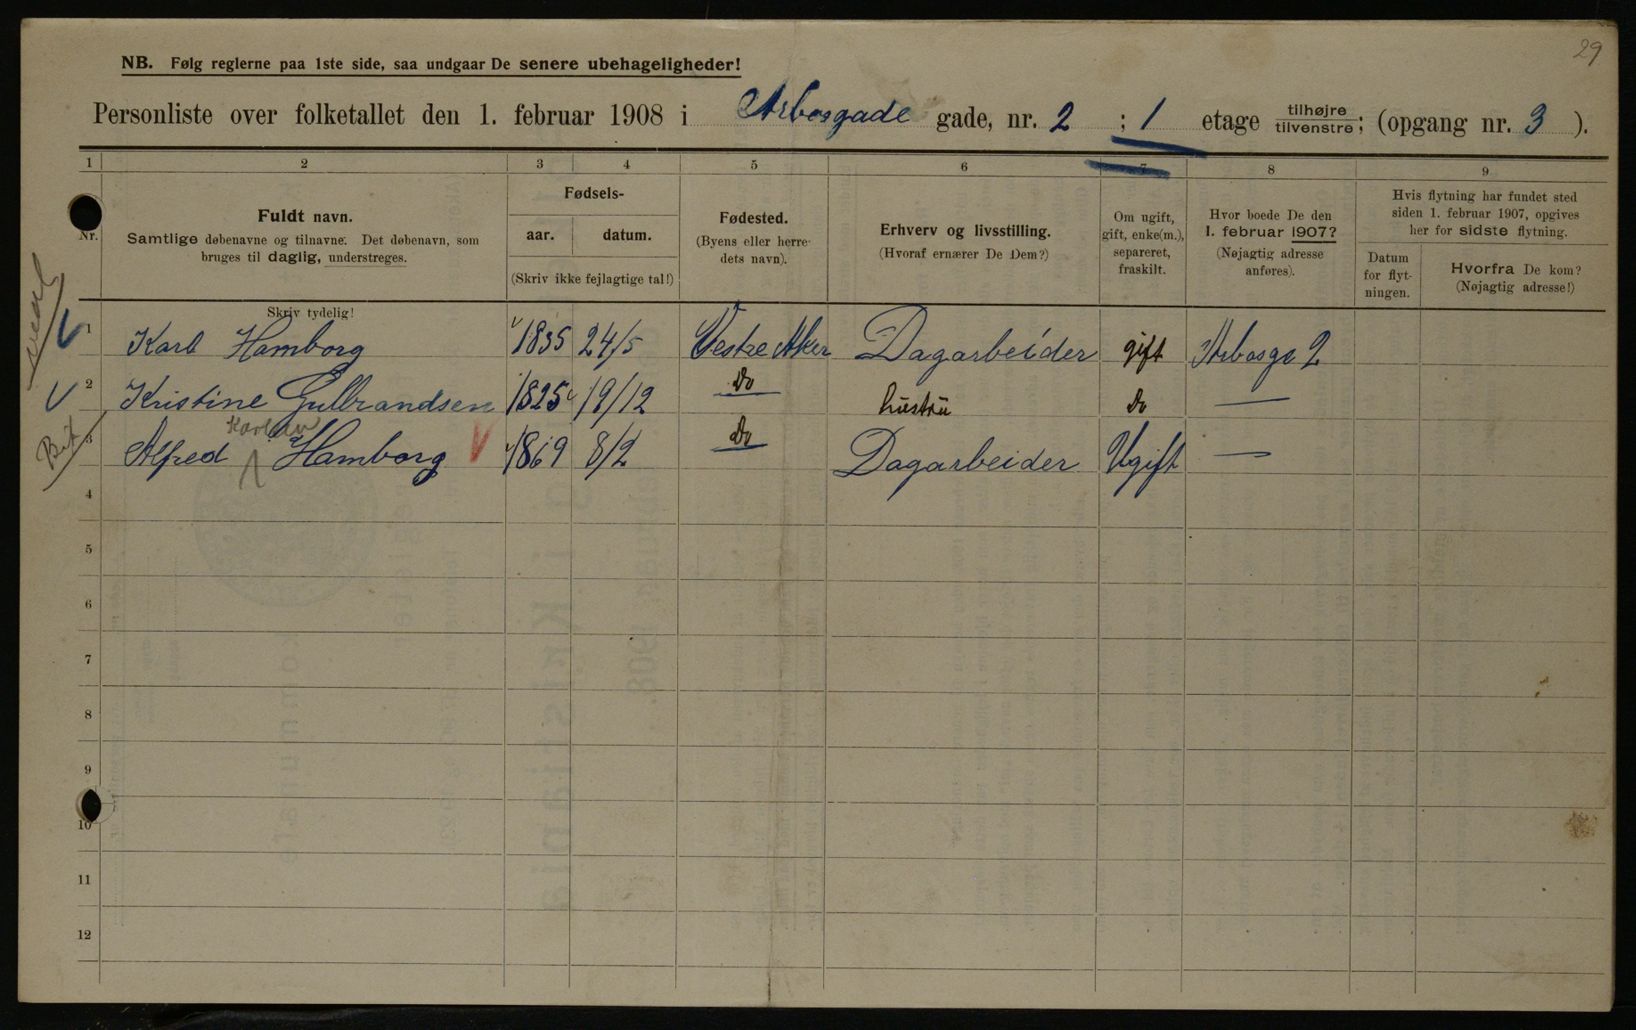 29
NB. Følg reglerne paa 1ste side, saa undgaar De senere ubehageligheder!
Personliste over folketallet den 1. februar 1908 i Arbosgade gade, nr. 2 ; 1 etage tilhøjre tilvenstre; (opgang nr. 3 ).
1 2 3 4 5 6 7 8 9
Nr.
Fuldt navn.
Samtlige døbenavne og tilnavne. Det døbenavn, som
bruges til daglig, understreges.
Skriv tydelig!
Fødsels-
aar. datum.
(Skriv ikke fejlagtige tal!)
Fødested.
(Byens eller herre-
dets navn).
Erhverv og livsstilling.
(Hvoraf ernærer De Dem?)
Om ugift,
gift, enke(m.),
separeret,
fraskilt.
Hvor boede De den
1. februar 1907?
(Nøjagtig adresse
anføres).
Hvis flytning har fundet sted
siden 1. februar 1907, opgives
her for sidste flytning.
Datum
for flyt-
ningen.
Hvorfra De kom?
(Nøjagtig adresse!)
1 Karl Hamborg 1835 24/5 Vestre Aker Dagarbeider gift Arbosgt 2
2 Kristine Gulbrandsen 1825 19/12 Do hustru do —
3 Alfred Hamborg 1869 8/2 Do Dagarbeider Ugift —
4
5
6
7
8
9
10
11
12